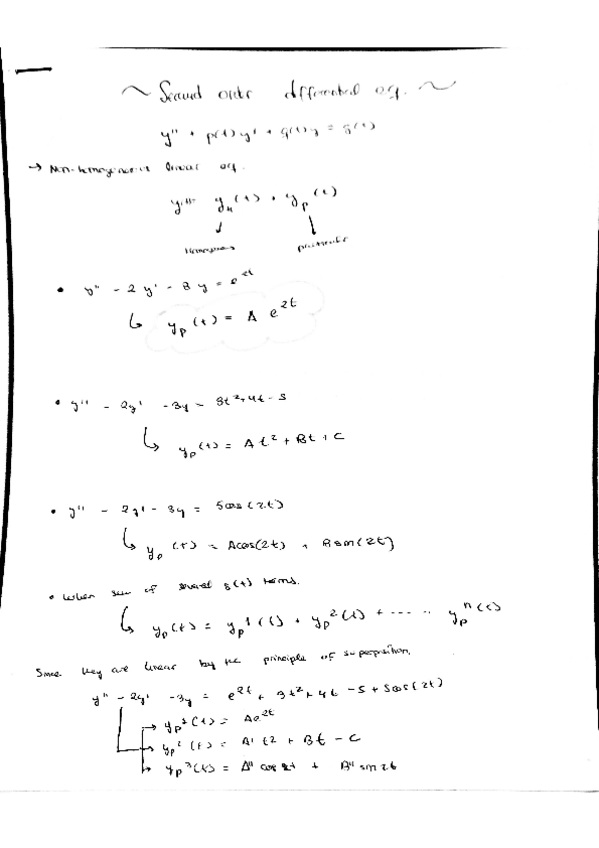 ~ Second order differential eq. ~
y'' + p(t) y' + q(t) y = g(t)
→ Non-homogeneous linear eq.
y(t)= y_h (t) + y_p (t)
Homogeneous particular
• y'' - 2 y' - 3 y = e^2t
y_p (t) = A e^2t
• y'' - 2y' - 3y = 3t^2+4t-5
y_p (t) = A t^2 + Bt + C
• y'' - 2y' - 3y = 5cos(2t)
y_p (t) = Acos(2t) + Bsin(2t)
• When sum of several g(t) terms.
y_p(t) = y_p^1(t) + y_p^2(t) + ------ y_p^n(t)
Since they are linear by the principle of superposition,
y'' - 2y' - 3y = e^2t + 3t^2 + 4t - 5 + 5cos(2t)
y_p^1(t) = Ae^2t
y_p^2 (t) = A' t2 + Bt - C
y_p^3(t) = A'' cos 2t + B'' sin 2t